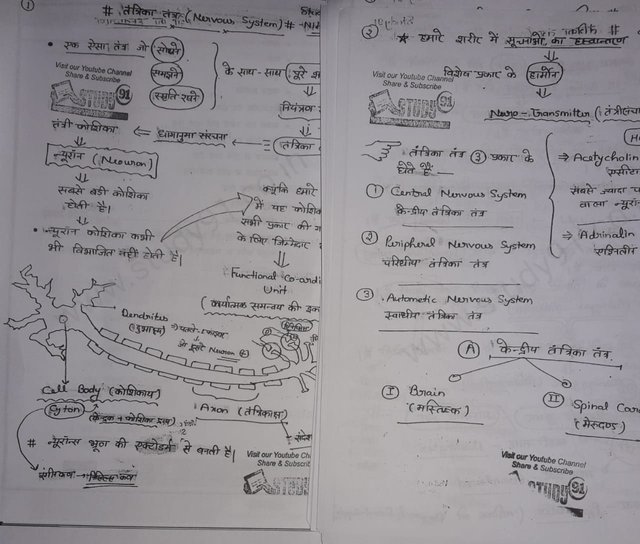 ①
# तंत्रिका तंत्र (Nervous System) #
• एक ऐसा तंत्र जो सोचने
समझने
स्मृति रखने
के साथ-साथ पूरे
नियंत्रण
Visit our Youtube Channel
Share & Subscribe
STUDY 91
तंत्री कोशिका ⇐ धागानुमा संरचना ⇐ तंत्रिका
न्यूरॉन (Neuron)
सबसे बड़ी कोशिका
होती है।
• न्यूरॉन कोशिका कभी
भी विभाजित नहीं होती है।
क्योंकि हमारे
में यह कोशिका
सभी प्रकार की
के लिए जिम्मेदार
Functional Co-ordi
Unit
(कार्यात्मक समन्वय की इका
Dendrites
(द्रुमाश्म)
दूसरे Neuron
Cell Body (कोशिकाय)
Cyton
Axon (तंत्रिकाक्ष)
# न्यूरॉन्स भ्रूण की एक्टोडर्म से बनती है।
Visit our Youtube Ch
Share & Subscri
STUDY
② ★ हमारे शरीर में सूचनाओं का हस्तान्तरण
विशेष प्रकार के हार्मोन
Visit our Youtube Channel
Share & Subscribe
STUDY 91
Neuro-Transmitter
तंत्रिका तंत्र ③ प्रकार के
होते हैं —
① Central Nervous System
केन्द्रीय तंत्रिका तंत्र
② Peripheral Nervous System
परिधीय तंत्रिका तंत्र
③ Automatic Nervous System
स्वाधीय तंत्रिका तंत्र
⇒ Acetycholin
सबसे ज्यादा
वाला न्यूरॉन
⇒ Adrinalin
Ⓐ केन्द्रीय तंत्रिका तंत्र
Ⓘ Brain
(मस्तिष्क)
Ⅱ Spinal Cor
(मेरुदण्ड)
Visit our Youtube Channel
Share & Subscribe
STUDY 91